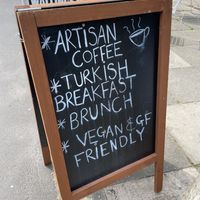 *ARTISAN
COFFEE
*TURKISH
BREAKFAST
*BRUNCH
*VEGAN & GF
FRIENDLY